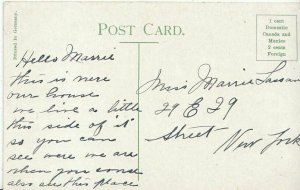 POST CARD.
1 cent
Domestic
Canada and
Mexico
2 cents
Foreign
Printed in Germany.
Hello Marrie
this is were
our house
we live a little
this side of "it"
so you can
see were we are
when you come
also see this place
Miss Marrie
29 E 29
Street
New York